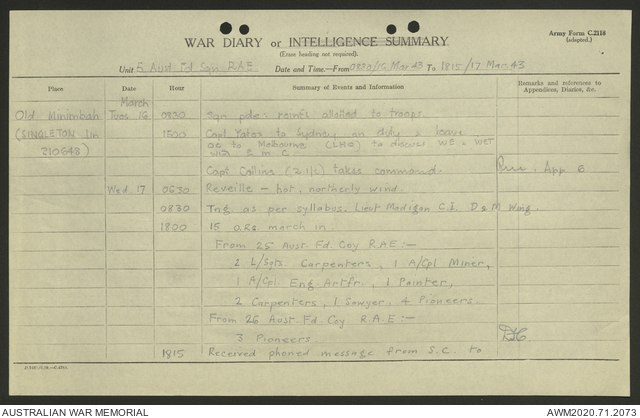 WAR DIARY or INTELLIGENCE SUMMARY
(Erase heading not required).
Army Form C.2118
(adapted.)
Unit 5 Aust Fd Sqn R.A.E Date and Time—From 0830/16 Mar 43 To 1815/17 Mar 43
Place Date Hour Summary of Events and Information Remarks and references to Appendices, Diaries, &c.
March
Old Minimbah Tues 16 0830 Sqn pde - reinfs alloted to troops.
(SINGLETON 1in 1500 Capt Yates to Sydney on duty & leave
210648) OC to Melbourne (LHQ) to discuss WE & WET
with E in C
Capt Collins (2 i/c) takes command. App B
Wed. 17 0630 Reveille — hot, northerly wind.
0830 Tng. as per syllabus. Lieut Madigan C.I. D & M Wing.
1800 15 O.Rs march in
From 25 Aust. Fd. Coy R.A.E :-
2 L/Sgts. Carpenters, 1 A/Cpl Miner,
1 A/Cpl. Eng. Artfr., 1 Painter,
2 Carpenters, 1 Sawyer, 4 Pioneers.
From 26 Aust Fd Coy. R.A.E :-
3 Pioneers
1815 Received phoned message from S.C. to
AUSTRALIAN WAR MEMORIAL AWM2020.71.2073